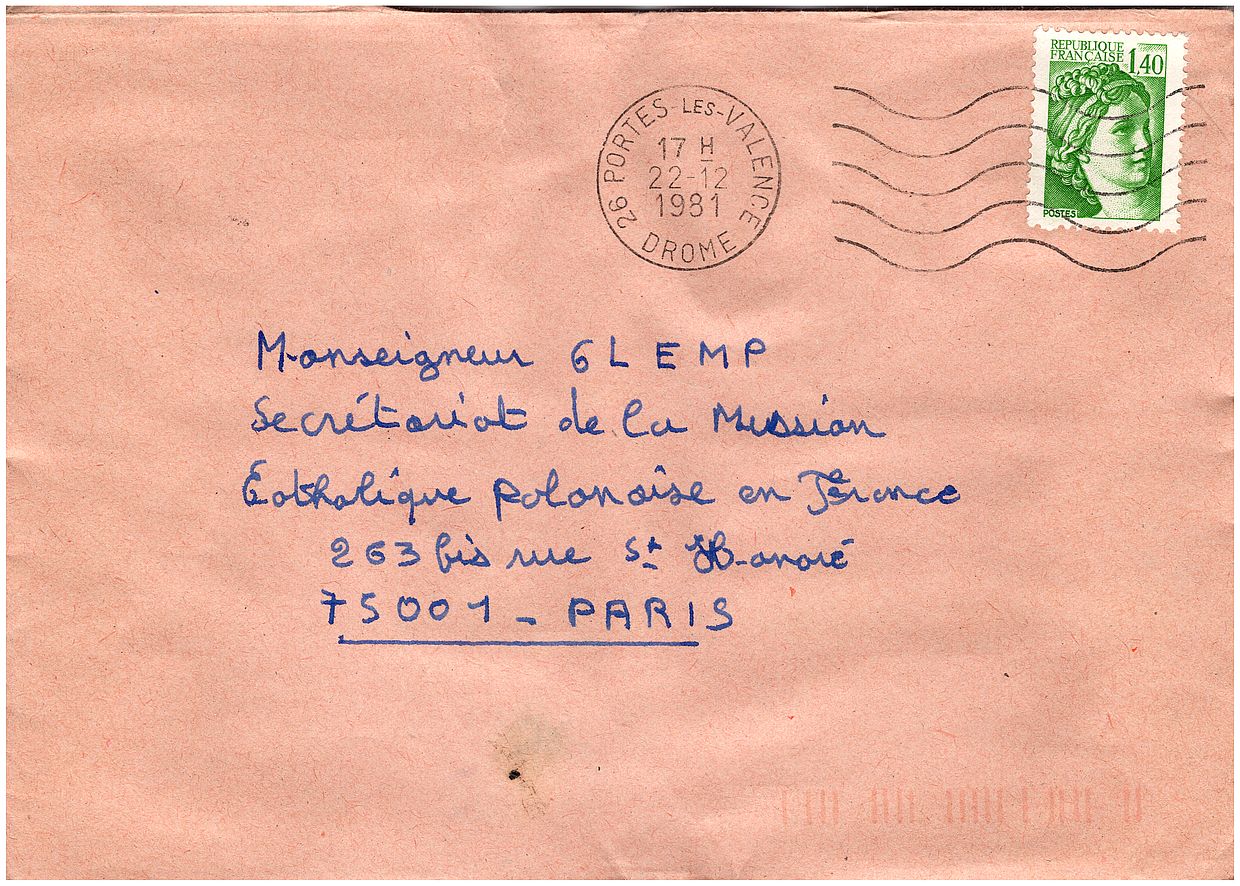 REPUBLIQUE
FRANÇAISE
1,40
POSTES
26 PORTES-LES-VALENCE
17 H
22-12
1981
DROME
Monseigneur GLEMP
Secrétariat de la Mission
Catholique polonaise en France
263 bis rue St Honoré
75001 - PARIS